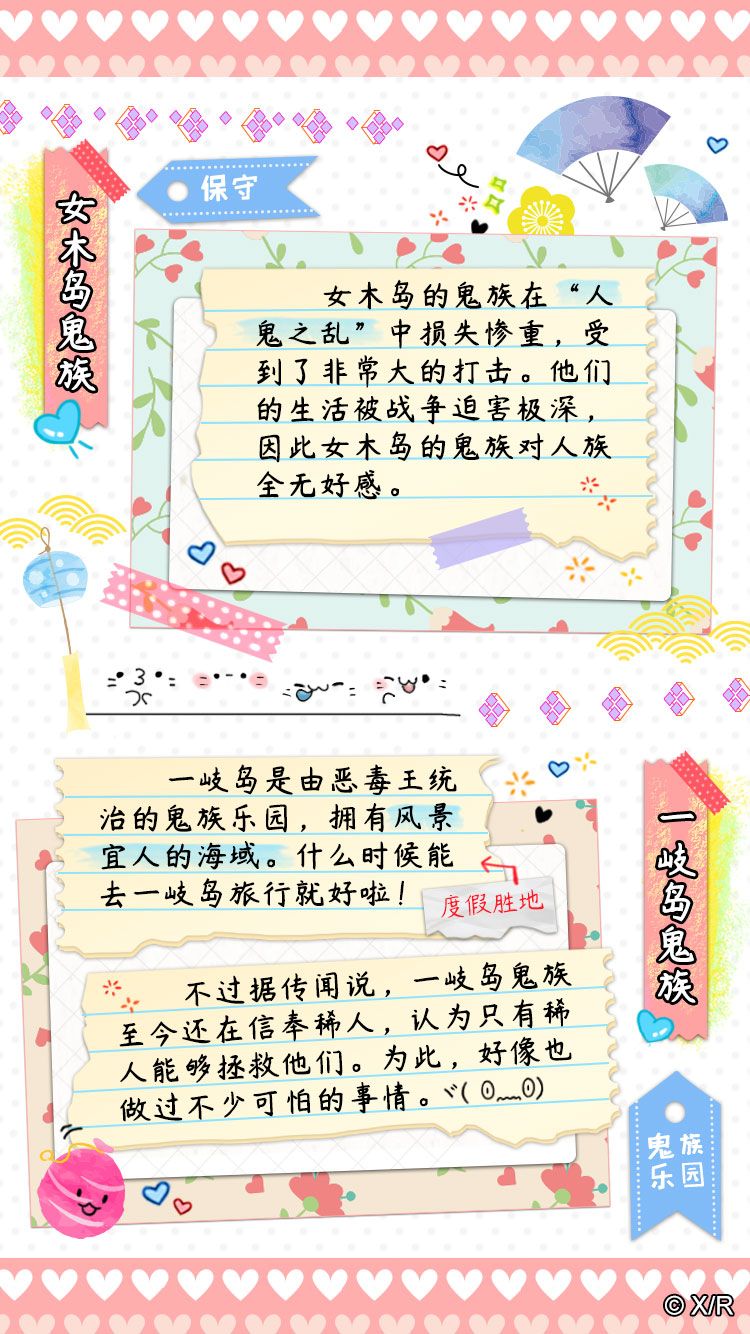 保守
女木岛鬼族
女木岛的鬼族在“人
鬼之乱”中损失惨重，受
到了非常大的打击。他们
的生活被战争迫害极深，
因此女木岛的鬼族对人族
全无好感。
一岐岛鬼族
一岐岛是由恶毒王统
治的鬼族乐园，拥有风景
宜人的海域。什么时候能
去一岐岛旅行就好啦！
度假胜地
不过据传闻说，一岐岛鬼族
至今还在信奉稀人，认为只有稀
人能够拯救他们。为此，好像也
做过不少可怕的事情。ヾ( 0﹏0)
鬼族
乐园
© X/R